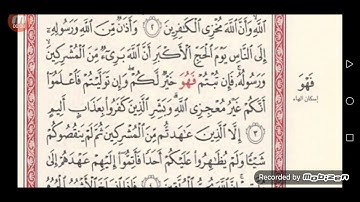 اللَّهِ وَأَنَّ اللَّهَ مُخْزِي الْكَافِرِينَ ٢ وَأَذَانٌ مِنَ اللَّهِ وَرَسُولِهِ
إِلَى النَّاسِ يَوْمَ الْحَجِّ الْأَكْبَرِ أَنَّ اللَّهَ بَرِيءٌ مِنَ الْمُشْرِكِينَ
وَرَسُولُهُ فَإِن تُبْتُمْ فَهْوَ خَيْرٌ لَكُمْ وَإِن تَوَلَّيْتُمْ فَاعْلَمُوا
أَنَّكُمْ غَيْرُ مُعْجِزِي اللَّهِ وَبَشِّرِ الَّذِينَ كَفَرُوا بِعَذَابٍ أَلِيمٍ
٣ إِلَّا الَّذِينَ عَاهَدتُّم مِنَ الْمُشْرِكِينَ ثُمَّ لَمْ يَنقُصُوكُمْ
شَيْئًا وَلَمْ يُظَاهِرُوا عَلَيْكُمْ أَحَدًا فَأَتِمُّوا إِلَيْهِمْ عَهْدَهُمْ إِلَى
فَهْوَ
إسكان الهاء
Recorded by Mobizen